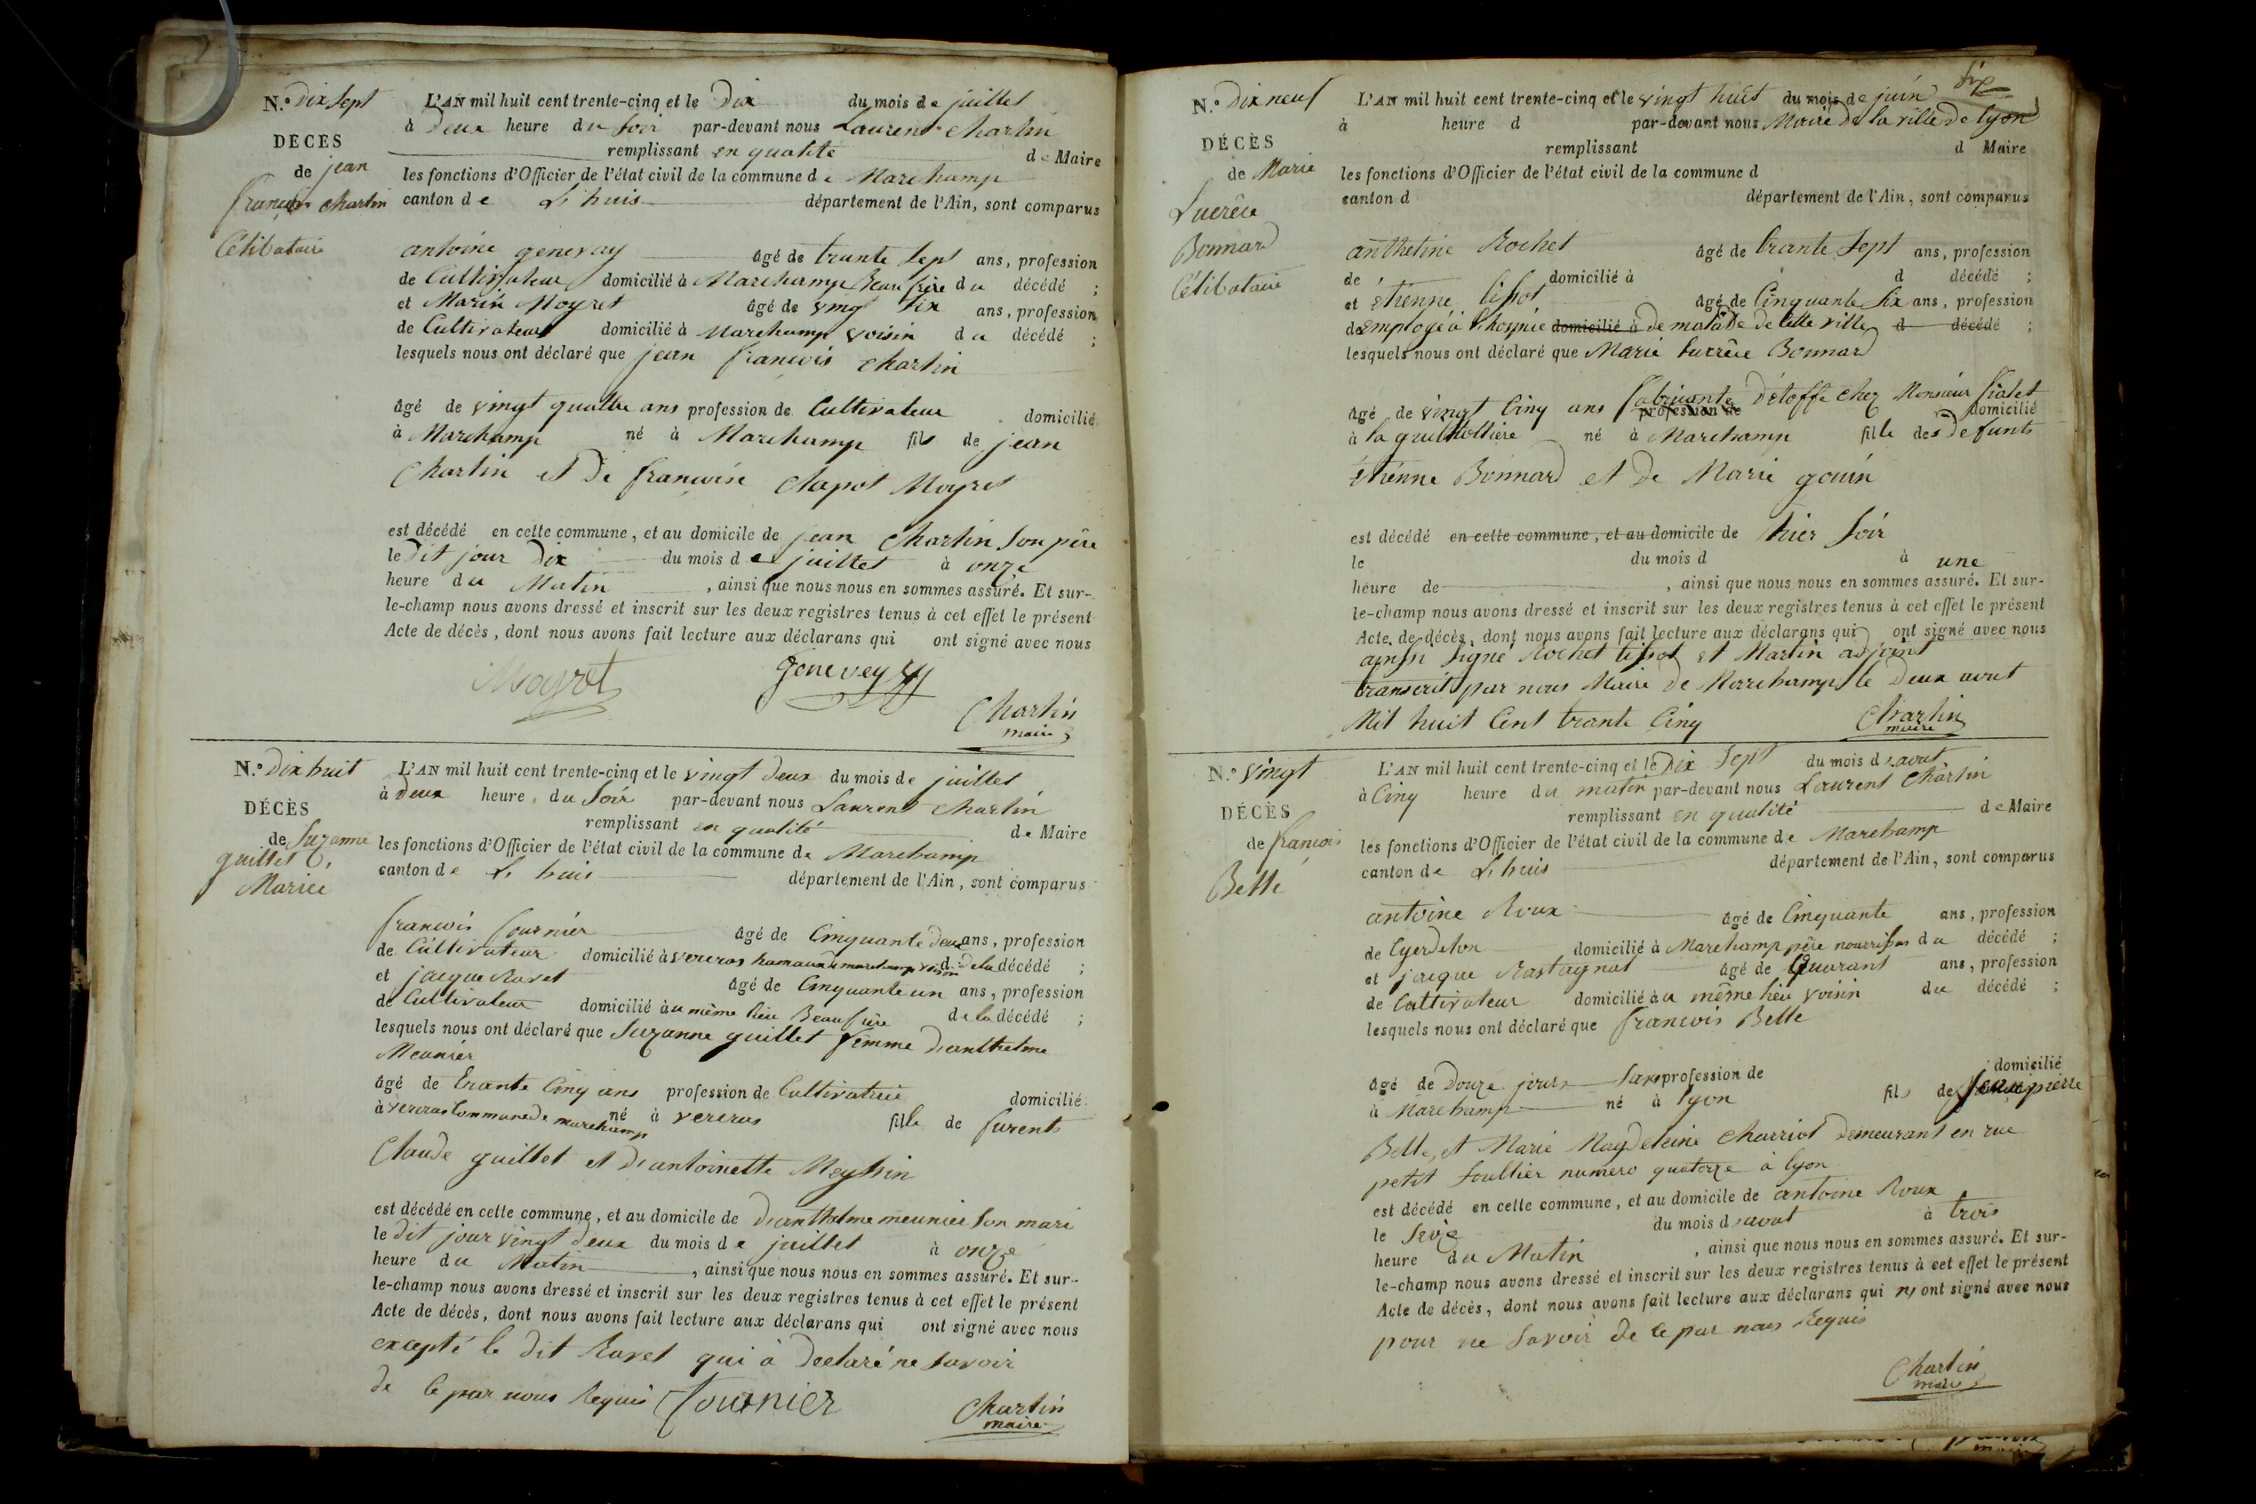 N.º Dix sept
DÉCÈS
de jean
françois Chartin
Célibataire
L'AN mil huit cent trente-cinq et le Dix du mois de juillet
à Deux heure du soir par-devant nous Laurent Chartin
remplissant en qualité de Maire
les fonctions d'Officier de l'état civil de la commune de Marchamp
canton de Lhuis département de l'Ain, sont comparus
antoine genevay âgé de trante sept ans, profession
de Cultivateur domicilié à Marchamp Beau frère du décédé ;
et Marin Moyret âgé de vingt six ans, profession
de Cultivateur domicilié à Marchamp voisin du décédé ;
lesquels nous ont déclaré que jean francois Chartin
âgé de vingt quattre ans profession de Cultivateur domicilié
à Marchamp né à Marchamp fils de jean
Chartin et de francoise Chapot Moyret
est décédé en cette commune, et au domicile de jean Chartin son père
le dit jour Dix du mois de juillet à onze
heure du Matin, ainsi que nous nous en sommes assuré. Et sur-
le-champ nous avons dressé et inscrit sur les deux registres tenus à cet effet le présent
Acte de décès, dont nous avons fait lecture aux déclarans qui ont signé avec nous
Moyret genevey
Chartin
maire
N.º Dix huit
DÉCÈS
de Suzanne
guillet
Mariée
L'AN mil huit cent trente-cinq et le vingt deux du mois de juillet
à Deux heure du soir par-devant nous Laurent Chartin
remplissant en qualité de Maire
les fonctions d'Officier de l'état civil de la commune de Marchamp
canton de Lhuis département de l'Ain, sont comparus
francois fournier âgé de Cinquante deux ans, profession
de Cultivateur domicilié à vereras hamaux de marchamp voisin de la décédé ;
et jacque Ravet âgé de Cinquante un ans, profession
de Cultivateur domicilié au même lieu Beau frère de la décédé ;
lesquels nous ont déclaré que Suzanne guillet femme d'anthelme
Meunier
âgé de trante Cinq ans profession de Cultivatrice domicilié
à vereras Commune de marchamp né à vereras fille de furents
Claude guillet et d'antoinette Meyssin
est décédé en cette commune, et au domicile de d'anthelme meunier son mari
le dit jour vingt deux du mois de juillet à onze
heure du Matin, ainsi que nous nous en sommes assuré. Et sur-
le-champ nous avons dressé et inscrit sur les deux registres tenus à cet effet le présent
Acte de décès, dont nous avons fait lecture aux déclarans qui ont signé avec nous
excepté le dit Ravet qui à declaré ne savoir
de ce par nous Requis fournier
Chartin
maire
six
N.º Dix neuf
DÉCÈS
de Marie
Lucrèce
Bonnard
Célibataire
L'AN mil huit cent trente-cinq et le vingt huit du mois de juin
à heure d par-devant nous Maire de la ville de lyon
remplissant d Maire
les fonctions d'Officier de l'état civil de la commune d
canton d département de l'Ain, sont comparus
antheline Rochet âgé de trante sept ans, profession
de domicilié à d décédé ;
et étienne tissot âgé de Cinquante six ans, profession
de employé à l'hospice domicilié à de malade de cette ville d décédé ;
lesquels nous ont déclaré que Marie Lucrèce Bonnard
âgé de vingt Cinq ans fabriquante d'étoffe chez Monsieur fialet
profession de domicilié
à la guillottière né à Marchamp fille des defunts
étienne Bonnard et de Marie gouin
est décédé en cette commune, et au domicile de hier soir
le du mois d à une
heure de, ainsi que nous nous en sommes assuré. Et sur-
le-champ nous avons dressé et inscrit sur les deux registres tenus à cet effet le présent
Acte de décès, dont nous avons fait lecture aux déclarans qui ont signé avec nous
ainsi signé Rochet tissot et Martin adjoint
transcrit par nous Maire de Marchamp le Deux aout
Mil huit Cent trante Cinq
Chartin
maire
N.º vingt
DÉCÈS
de francois
Belle
L'AN mil huit cent trente-cinq et le Dix sept du mois d'aout
à Cinq heure du matin par-devant nous Laurent Chartin
remplissant en qualité de Maire
les fonctions d'Officier de l'état civil de la commune de Marchamp
canton de Lhuis département de l'Ain, sont comparus
antoine Roux âgé de Cinquante ans, profession
de domicilié à Marchamp père nourrisson du décédé ;
et jacque Rastagnat âgé de Quarant ans, profession
de Cultivateur domicilié au même lieu voisin du décédé ;
lesquels nous ont déclaré que francois Belle
âgé de Douze jours sans profession de domicilié
à Marchamp né à lyon fils de jean pierre
Belle, et Marie Magdeleine Charriot demeurant en rue
petit soullier numero quatorze à lyon
est décédé en cette commune, et au domicile de antoine Roux
le seize du mois d'aout à trois
heure du Matin, ainsi que nous nous en sommes assuré. Et sur-
le-champ nous avons dressé et inscrit sur les deux registres tenus à cet effet le présent
Acte de décès, dont nous avons fait lecture aux déclarans qui n'ont signé avec nous
pour ne savoir de ce par nous Requis
Chartin
maire